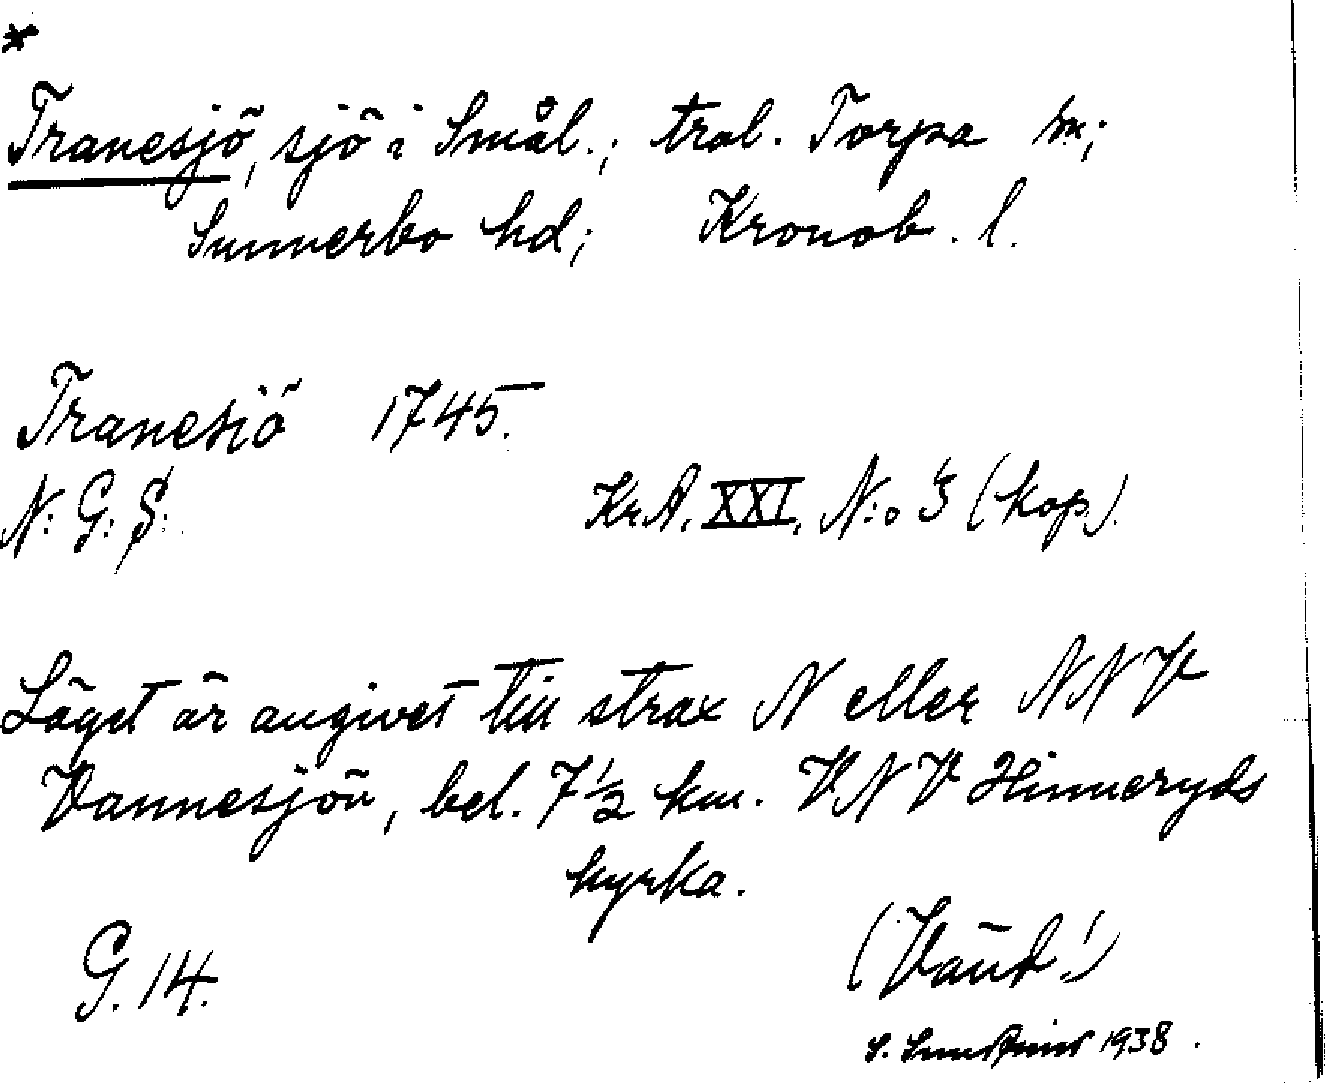 *
Tranesjö, sjö i Smål.; trol. Torpa sn;
Sunnerbo hd; Kronob. l.
Tranesiö 1745.
N: G: S:
Kr.A. XXI, N:o 3 (kop).
Läget är angivet till strax N eller NNV
Vannesjön, bel. 7 1/2 km. VNV Hinneryds
kyrka.
G. 14.
(Vänd!)
S. 1938.